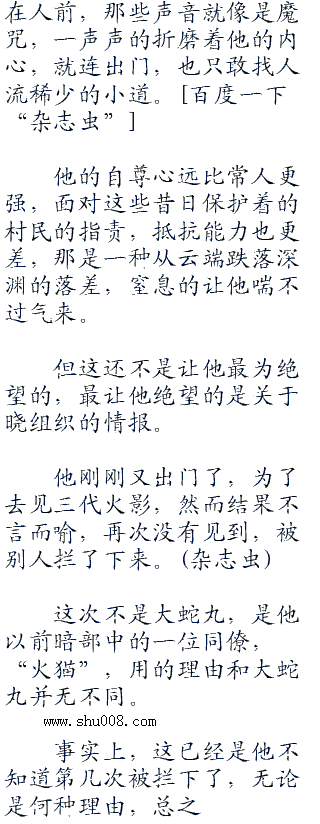 在人前，那些声音就像是魔
咒，一声声的折磨着他的内
心，就连出门，也只敢找人
流稀少的小道。[百度一下
“杂志虫”]
他的自尊心远比常人更
强，面对这些昔日保护着的
村民的指责，抵抗能力也更
差，那是一种从云端跌落深
渊的落差，窒息的让他喘不
过气来。
但这还不是让他最为绝
望的，最让他绝望的是关于
晓组织的情报。
他刚刚又出门了，为了
去见三代火影，然而结果不
言而喻，再次没有见到，被
别人拦了下来。(杂志虫)
这次不是大蛇丸，是他
以前暗部中的一位同僚，
“火猫”，用的理由和大蛇
丸并无不同。
www.shu008.com
事实上，这已经是他不
知道第几次被拦下了，无论
是何种理由，总之